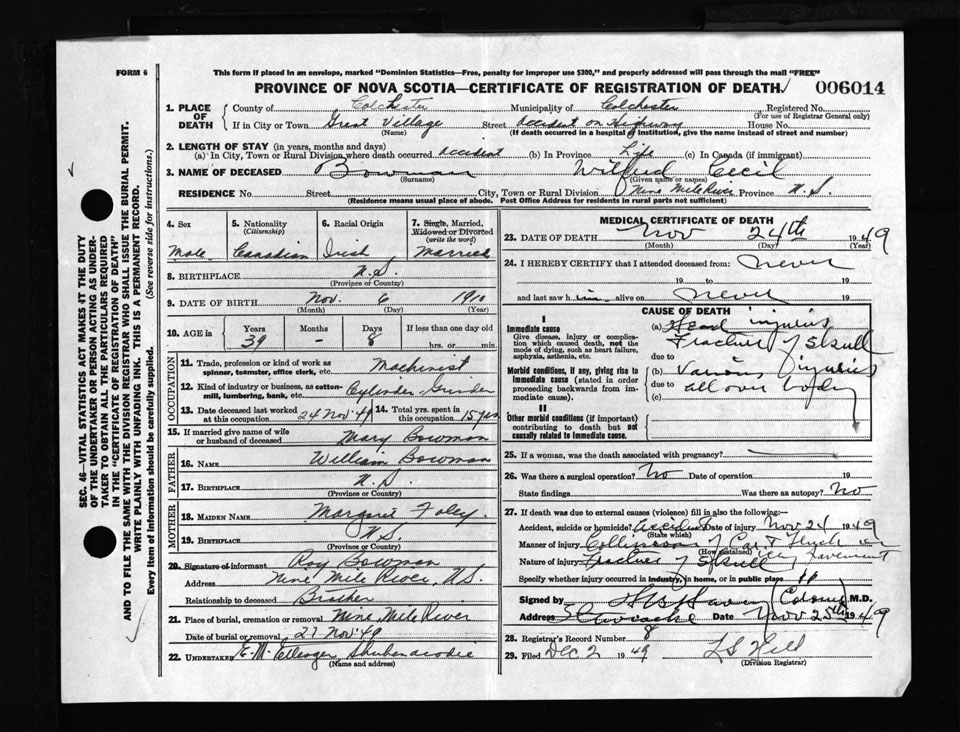 FORM 6
This form if placed in an envelope, marked "Dominion Statistics—Free, penalty for improper use $300," and properly addressed will pass through the mail "FREE"
PROVINCE OF NOVA SCOTIA—CERTIFICATE OF REGISTRATION OF DEATH 006014
SEC. 46—VITAL STATISTICS ACT MAKES IT THE DUTY
OF THE UNDERTAKER OR PERSON ACTING AS UNDER-
TAKER TO OBTAIN ALL THE PARTICULARS REQUIRED
IN THE "CERTIFICATE OF REGISTRATION OF DEATH"
AND TO FILE THE SAME WITH THE DIVISION REGISTRAR WHO SHALL ISSUE THE BURIAL PERMIT.
WRITE PLAINLY WITH UNFADING INK. THIS IS A PERMANENT RECORD.
Every item of Information should be carefully supplied. (See reverse side for instructions.)
1. PLACE OF DEATH County of Colchester Municipality of Colchester Registered No.
(For use of Registrar General only)
If in City or Town Great Village Street Accident on Highway House No.
(Name) (If death occurred in a hospital or institution, give the name instead of street and number)
2. LENGTH OF STAY (in years, months and days)
(a) In City, Town or Rural Division where death occurred accident (b) In Province Life (c) In Canada (if immigrant)
3. NAME OF DECEASED Bowman Wilfred Cecil
(Surname) (Given name or names)
RESIDENCE No. Street City, Town or Rural Division Nine Mile River Province N.S.
(Residence means usual place of abode. Post Office Address for residents in rural parts not sufficient)
4. Sex Male
5. Nationality (Citizenship) Canadian
6. Racial Origin Irish
7. Single, Married, Widowed or Divorced (write the word) Married
8. BIRTHPLACE N.S.
(Province or Country)
9. DATE OF BIRTH Nov. 6 1910
(Month) (Day) (Year)
10. AGE in Years 39 Months – Days 8 If less than one day old hrs. or min.
OCCUPATION
11. Trade, profession or kind of work as spinner, teamster, office clerk, etc. Machinist
12. Kind of industry or business, as cotton-mill, lumbering, bank, etc. Cylinder Grinder
13. Date deceased last worked at this occupation 24 Nov '49 14. Total yrs. spent in this occupation 15 yrs
15. If married give name of wife or husband of deceased Mary Bowman
FATHER
16. NAME William Bowman
17. BIRTHPLACE N.S.
(Province or Country)
MOTHER
18. MAIDEN NAME Foley
19. BIRTHPLACE N.S.
(Province or Country)
20. Signature of informant Roy Bowman
Address Nine Mile River, N.S.
Relationship to deceased Brother
21. Place of burial, cremation or removal Nine Mile River
Date of burial or removal 27 Nov '49
22. UNDERTAKER E.M. Shubenacadie
(Name and address)
MEDICAL CERTIFICATE OF DEATH
23. DATE OF DEATH Nov 24th 1949
(Month) (Day) (Year)
24. I HEREBY CERTIFY that I attended deceased from: never
19 to 19
and last saw him alive on never 19
CAUSE OF DEATH
I
Immediate cause
Give disease, injury or complication which caused death, not the mode of dying, such as heart failure, asphyxia, asthenia, etc.
(a) Head injuries
Fracture of Skull
due to
Morbid conditions, if any, giving rise to immediate cause (stated in order proceeding backwards from immediate cause).
(b) Various injuries
due to all over body
(c)
II
Other morbid conditions (if important) contributing to death but not causally related to immediate cause.
25. If a woman, was the death associated with pregnancy?
26. Was there a surgical operation? No Date of operation 19
State findings Was there an autopsy? No
27. If death was due to external causes (violence) fill in also the following:
Accident, suicide or homicide? accident Date of injury Nov 24 1949
(State which)
Manner of injury Collision of Car & Truck
(How sustained)
Nature of injury Fracture of Skull pavement
Specify whether injury occurred in industry, in home, or in public place
Signed by M.D.
Address Date Nov 25th 1949
28. Registrar's Record Number 8
29. Filed Dec 2 1949 L S Hill
(Division Registrar)